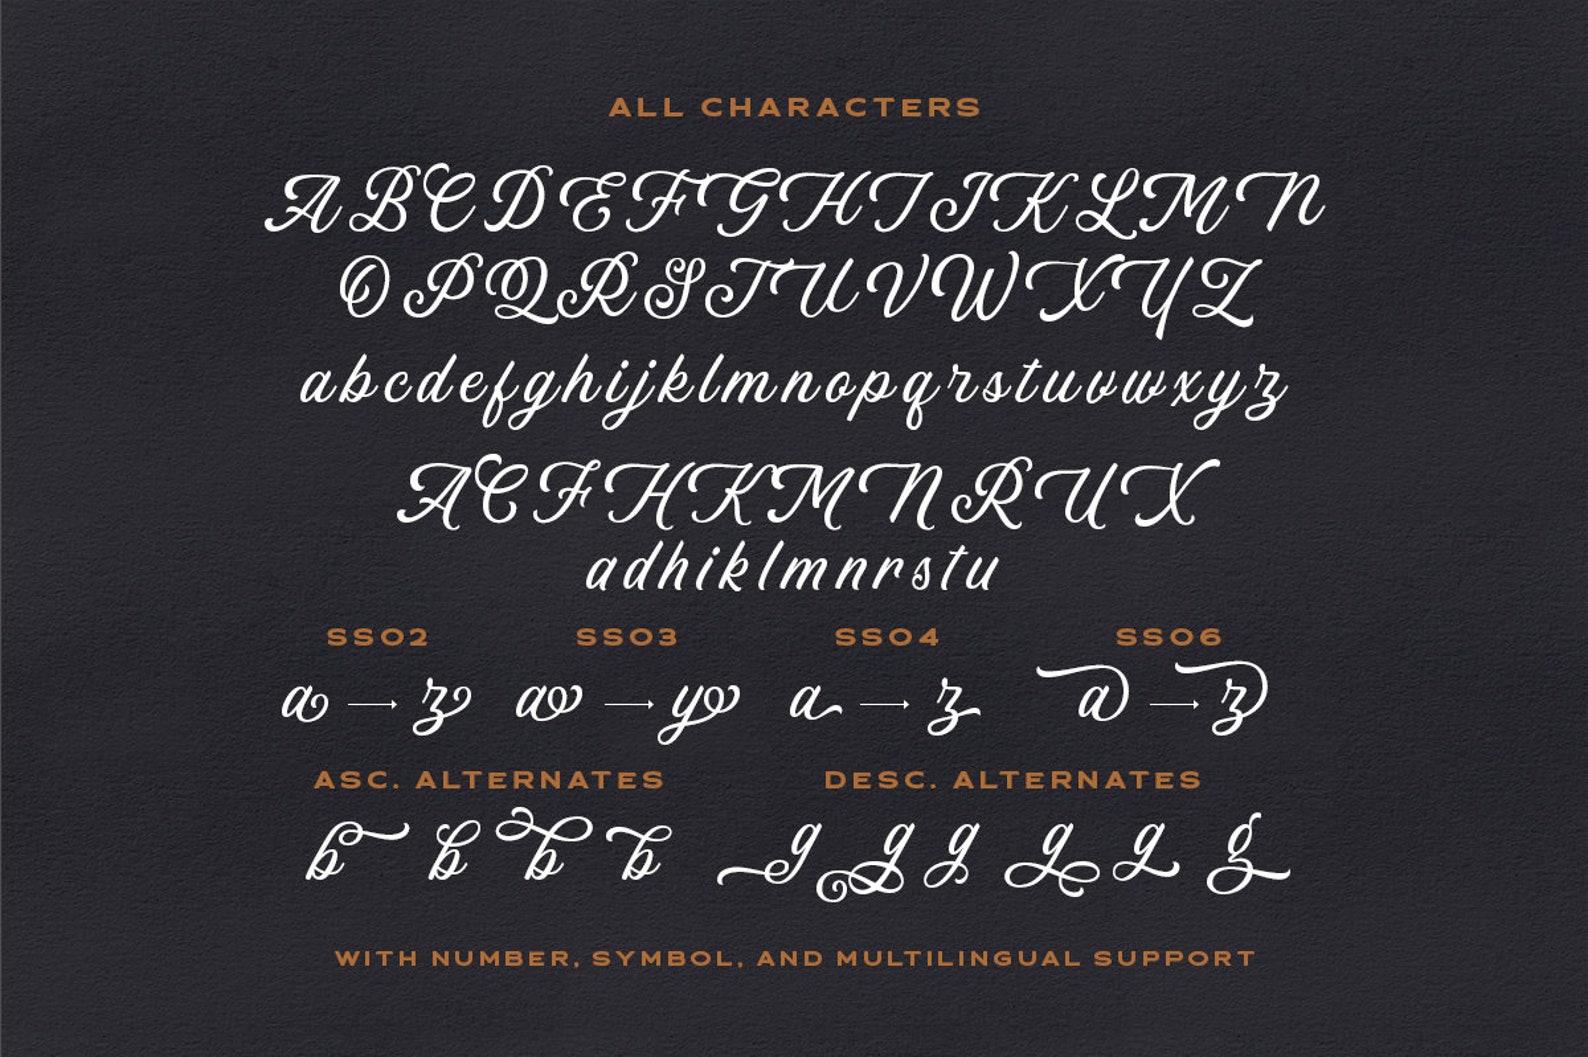 ALL CHARACTERS
ABCDEFGHIJKLMN
OPQRSTUVWXYZ
abcdefghijklmnopqrstuvwxyz
ACFHKMNRUX
adhiklmnrstu
SS02 SS03 SS04 SS06
a → z a → y a → z a → z
ASC. ALTERNATES DESC. ALTERNATES
b b b b g g g g g g
WITH NUMBER, SYMBOL, AND MULTILINGUAL SUPPORT